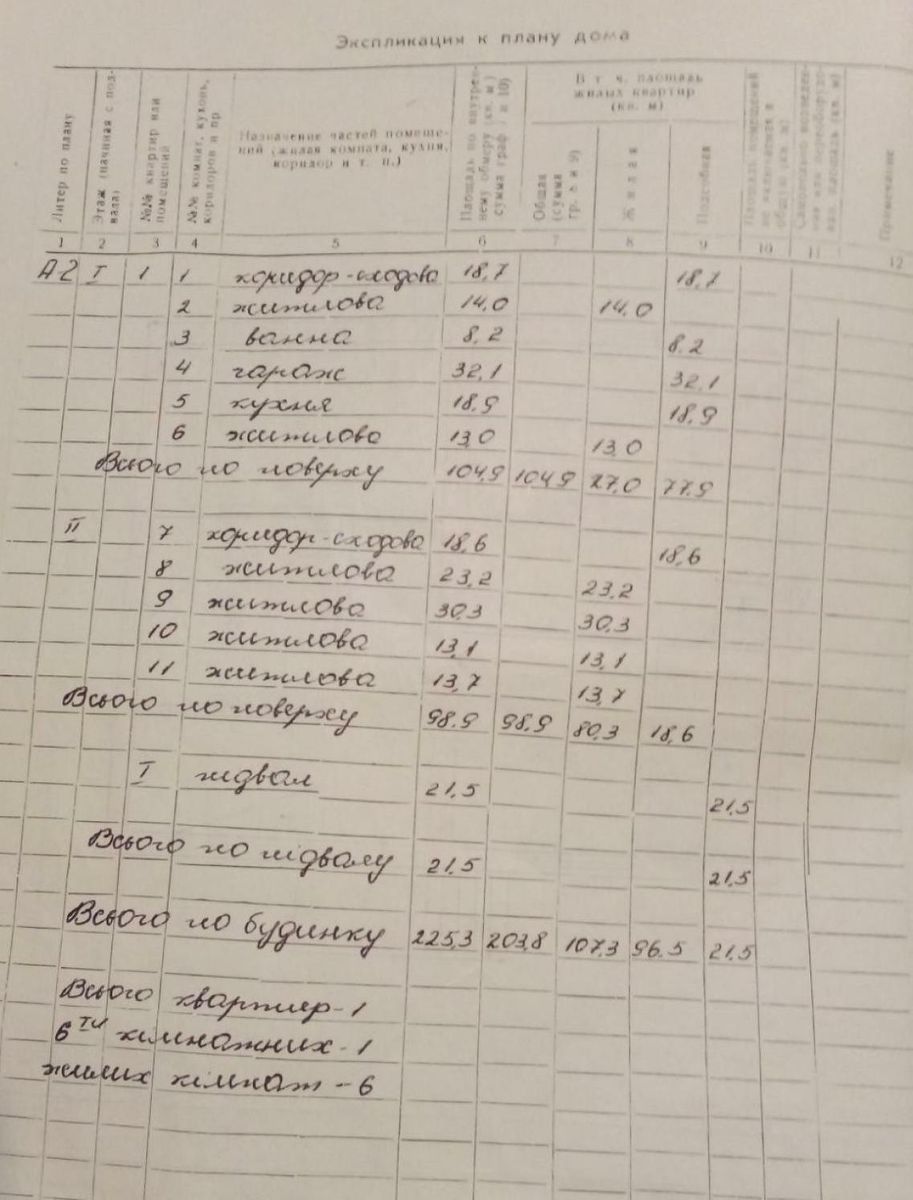 Экспликация к плану дома
Литер по плану
Этаж (начиная с подвала)
№№ квартир или помещений
№№ комнат, кухонь, коридоров и пр
Назначение частей помещений (жилая комната, кухня, коридор и т. п.)
Площадь по внутреннему обмеру (кв. м) сумма граф 7 и 10)
В т. ч. площадь жилых квартир (кв. м)
Общая (сумма гр. 8 и 9)
Жилая
Подсобная
Площадь помещений не включаемая в общую (кв. м)
Примечание
1 2 3 4 5 6 7 8 9 10 11 12
А-2 I 1 1 коридор-сходова 18,7 18,7
2 житлова 14,0 14,0
3 ванна 8,2 8.2
4 гараж 32,1 32,1
5 кухня 18,9 18,9
6 житлова 13,0 13,0
Всього по поверху 104,9 104,9 27,0 77,9
II 7 коридор-сходова 18,6 18,6
8 житлова 23,2 23,2
9 житлова 30,3 30,3
10 житлова 13,1 13,1
11 житлова 13,7 13,7
Всього по поверху 98.9 98,9 80,3 18,6
I підвал 21,5 21,5
Всього по підвалу 21,5 21,5
Всього по будинку 225,3 203,8 107,3 96.5 21,5
Всього квартир-1
6ти кімнатних-1
жилих кімнат-6